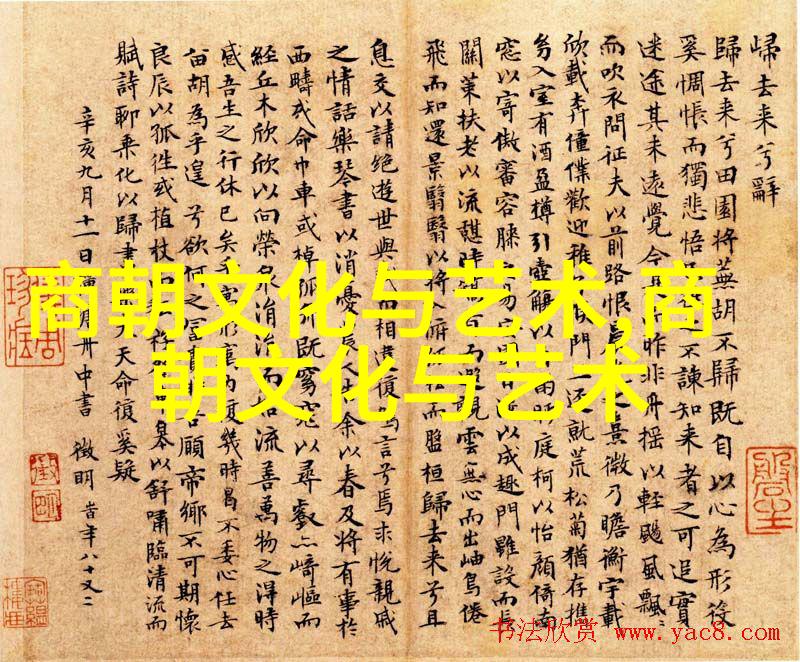 歸去来兮辭
歸去来兮田園将蕪胡不歸既自以心為形役
奚惆悵而獨悲悟不諫知来者之可追實
迷途其未遠覺今昨非舟摇以輕颺風飄〻
而吹衣問征夫以前路恨之景微乃瞻衡宇載
欣載奔僮僕歡迎稚門三迳就荒松菊猶存攜
幼入室有酒盈樽引壺觴以庭柯以怡顔倚南
窓以寄傲審容膝易以成趣門雖設而長
關策扶老以流憩時而遐觀雲無心而出岫鳥倦
飛而知還景翳翳以将入而盤桓歸去来兮且
息交以請絶遊世與我而相遺復駕言兮焉求悦親戚
之情話樂琴書以消憂農人余以春及将有事於
西疇或命巾車或棹孤舟既窈窕以尋壑亦崎嶇而
經丘木欣欣以向榮泉涓涓而始流善萬物之得時
感吾生之行休已矣寓形内復幾時曷不委心任去
留胡為乎遑兮欲何之富吾願帝鄉不可期懷
良辰以孤往或植杖皋以舒嘯臨清流而
賦詩聊乘化以歸天命復奚疑
辛亥九月十一日舟中書 徵明 時年八十又二
商朝文化与艺术,商
朝文化与艺术
书法欣赏 www.yac8.com